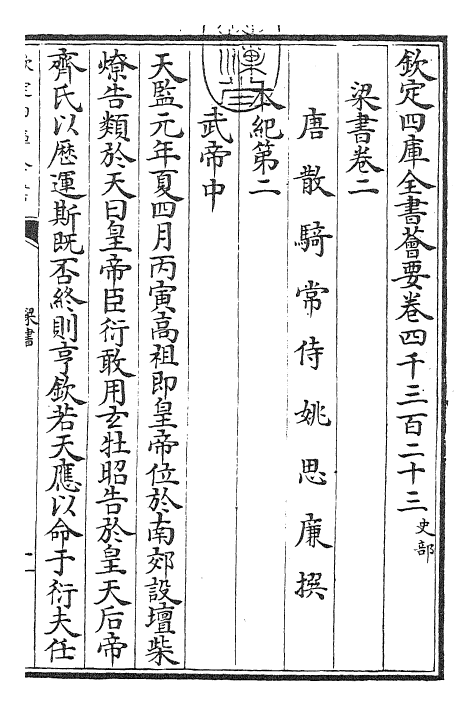 欽定四庫全書薈要卷四千三百二十三史部
梁書卷二
唐散騎常侍姚思廉撰
本紀第二
武帝中
天監元年夏四月丙寅髙祖即皇帝位於南郊設壇柴
燎告類於天曰皇帝臣衍敢用玄牡昭告於皇天后帝
齊氏以厯運斯既否終則亨欽若天應以命于衍夫任
梁書